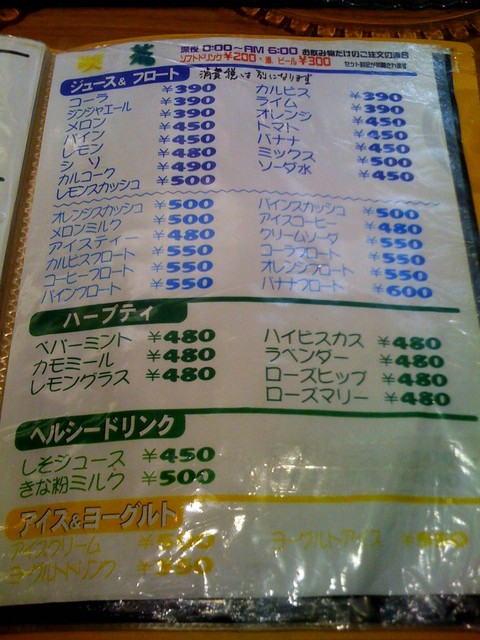 深夜 0:00~AM 6:00 お飲み物だけのご注文の場合
ソフトドリンク¥200・酒、ビール¥300
ジュース& フロート 消費税は別になります
コーラ ¥390
ジンジャエール ¥390
メロン ¥390
パイン ¥450
レモン ¥450
シソ ¥480
カルコーク ¥490
レモンスカッシュ ¥500
カルピス ¥390
ライム ¥390
オレンジ ¥450
トマト ¥450
バナナ ¥450
ミックス ¥500
ソーダ水 ¥450
オレンジスカッシュ ¥500
メロンミルク ¥500
アイスティー ¥480
カルピスフロート ¥550
コーヒーフロート ¥550
パインフロート ¥550
パインスカッシュ ¥500
アイスコーヒー ¥480
クリームソーダ ¥550
コーラフロート ¥550
オレンジフロート ¥550
バナナフロート ¥600
ハーブティ
ペパーミント ¥480
カモミール ¥480
レモングラス ¥480
ハイビスカス ¥480
ラベンダー ¥480
ローズヒップ ¥480
ローズマリー ¥480
ヘルシードリンク
しそジュース ¥450
きな粉ミルク ¥500
アイス&ヨーグルト
アイスクリーム
ヨーグルトドリンク
ヨーグルトアイス